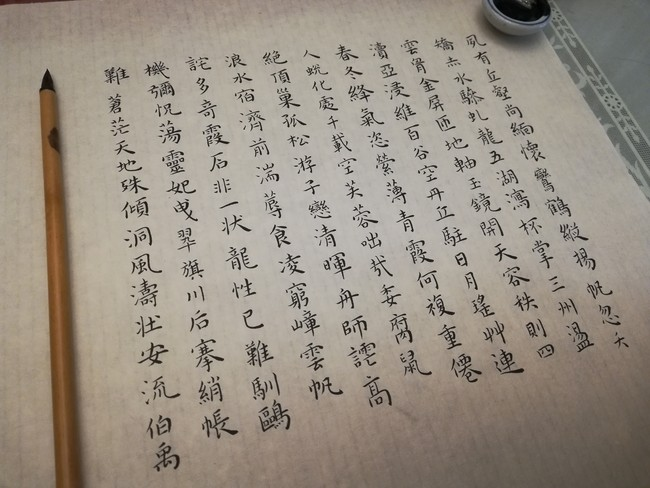 夙有丘壑尚緬懷鸞鶴縱揚帆忽天
矯赤水驂虬龍五湖瀉杯掌三州盪
雲骨金屏匝地軸玉鏡開天容秩則四
瀆亞浸維百谷空丹丘駐日月瑤艸連
春冬絳氣恣縈薄青霞何複重僊
人蛻化處千載空芙蓉咄哉委腐鼠
絕頂巢孤松游子戀清暉舟師謔高
浪水宿濟前湍蓐食凌窮嶂雲帆
詫多奇霞石非一狀龍性已難馴鷗
機彌怳蕩靈妃曳翠旗川后搴綃帳
難蒼茫天地殊傾洞風濤壯安流伯禹